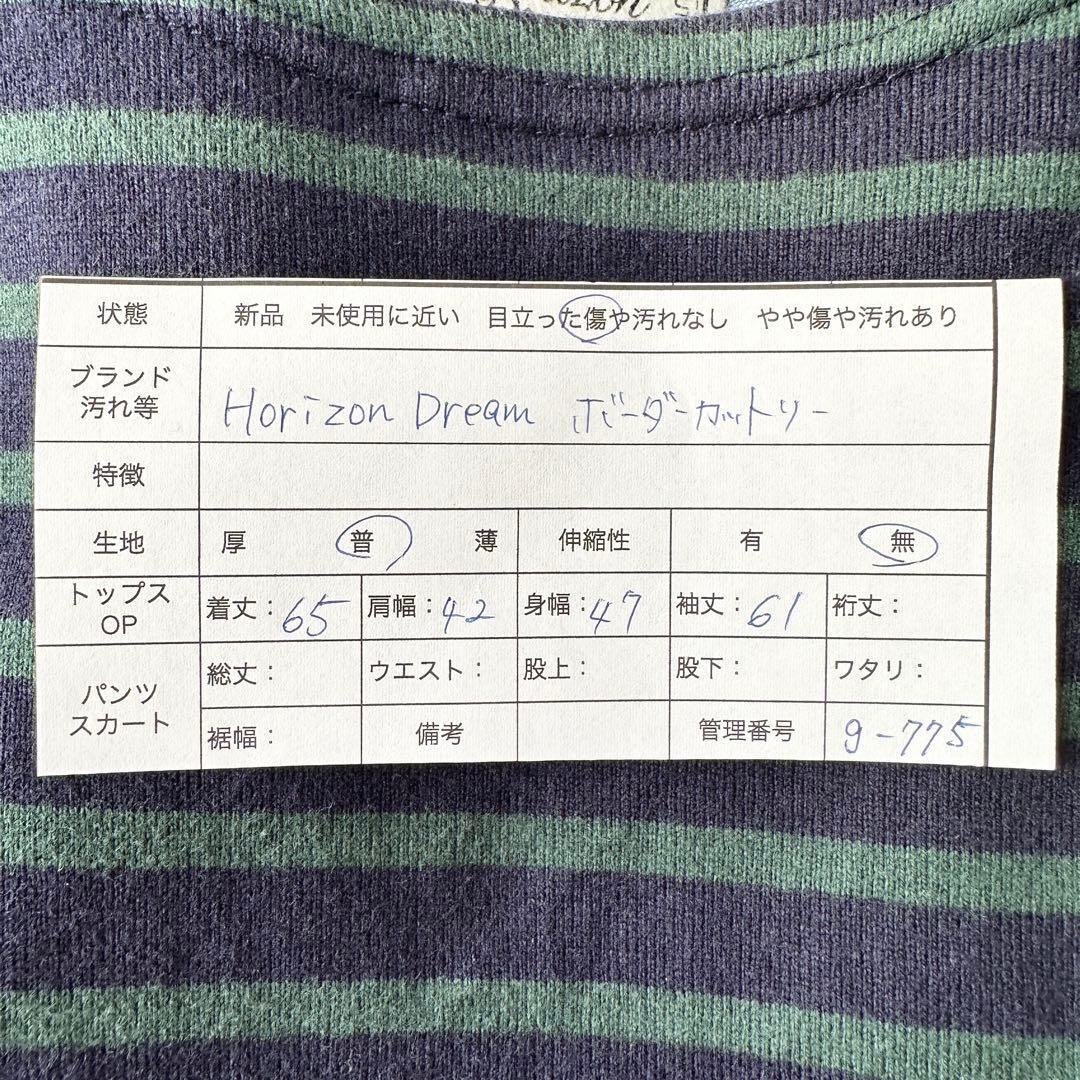 状態 新品 未使用に近い 目立った傷や汚れなし やや傷や汚れあり
ブランド
汚れ等 Horizon Dream ボーダーカットソー
特徴
生地 厚 普 薄 伸縮性 有 無
トップス
OP 着丈：65 肩幅：42 身幅：47 袖丈：61 裄丈：
パンツ
スカート 総丈： ウエスト： 股上： 股下： ワタリ：
裾幅： 備考 管理番号 g-775